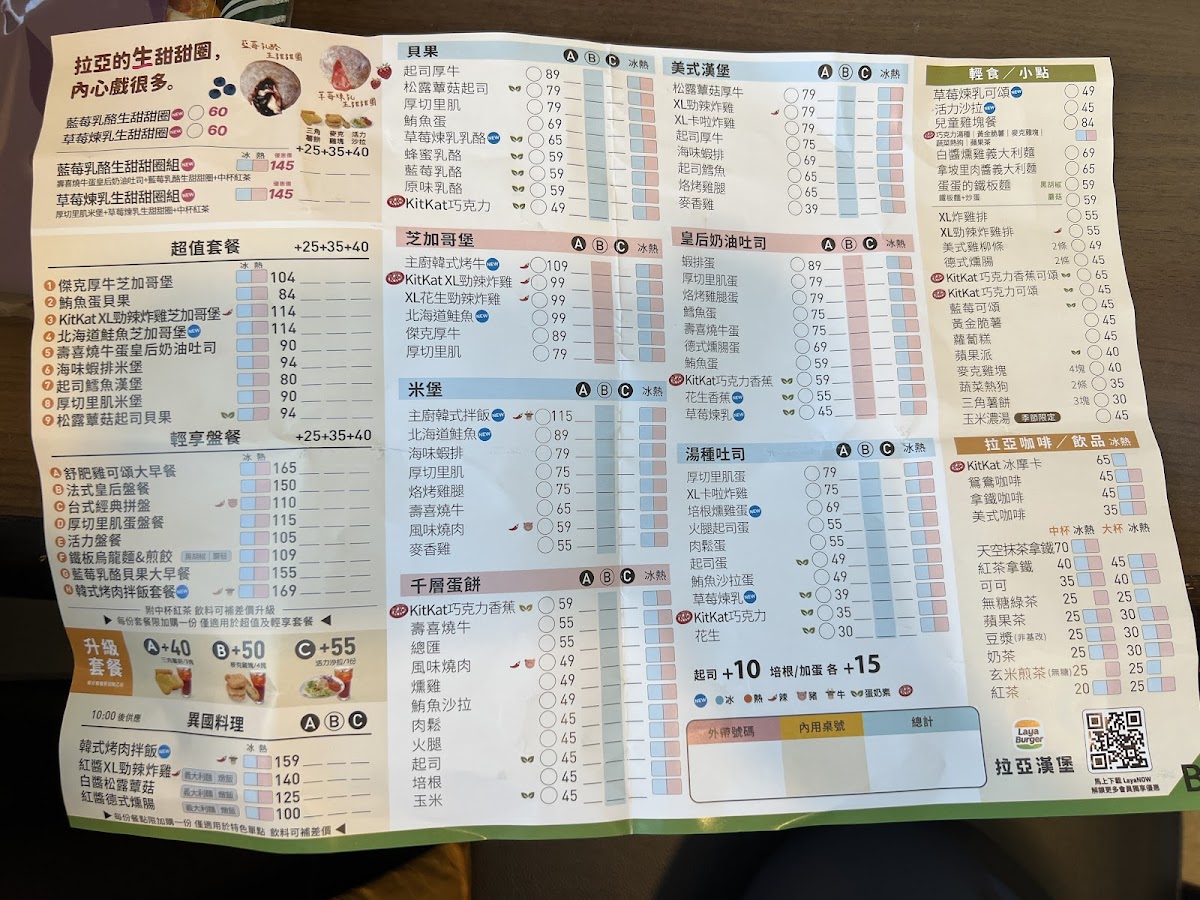 拉亞的生甜甜圈,
內心戲很多。
藍莓乳酪生甜甜圈 NEW 60
草莓煉乳生甜甜圈 NEW 60
三角薯餅 麥克雞塊 活力沙拉
+25+35+40
冰 熱 優惠價
藍莓乳酪生甜甜圈組 NEW 145
壽喜燒牛蛋皇后奶油吐司+藍莓乳酪生甜甜圈+中杯紅茶
草莓煉乳生甜甜圈組 NEW 優惠價 145
厚切里肌米堡+草莓煉乳生甜甜圈+中杯紅茶
超值套餐 +25+35+40
冰 熱
1 傑克厚牛芝加哥堡 104
2 鮪魚蛋貝果 84
3 KitKat XL勁辣炸雞芝加哥堡 114
4 北海道鮭魚芝加哥堡 NEW 114
5 壽喜燒牛蛋皇后奶油吐司 90
6 海味蝦排米堡 94
7 起司鱈魚漢堡 80
8 厚切里肌米堡 90
9 松露蕈菇起司貝果 94
輕享盤餐 +25+35+40
冰 熱
A 舒肥雞可頌大早餐 165
B 法式皇后盤餐 150
C 台式經典拼盤 110
D 厚切里肌蛋盤餐 115
E 活力盤餐 105
F 鐵板烏龍麵&煎餃 黑胡椒|蘑菇 109
G 藍莓乳酪貝果大早餐 155
H 韓式烤肉拌飯套餐 NEW 169
附中杯紅茶 飲料可補差價升級
▶ 每份套餐限加購一份 僅適用於超值及輕享套餐 ◀
升級套餐
A+40 三角薯餅/3塊
B+50 麥克雞塊/4塊
C+55 活力沙拉/1份
10:00 後供應 異國料理 A B C
冰 熱
韓式烤肉拌飯 NEW 159
紅醬XL勁辣炸雞 義大利麵|燉飯 140
白醬松露蕈菇 義大利麵|燉飯 125
紅醬德式燻腸 義大利麵|燉飯 100
▶ 每份餐點限加購一份 僅適用於特色單點 飲料可補差價 ◀
貝果 A B C 冰熱
起司厚牛 89
松露蕈菇起司 79
厚切里肌 79
鮪魚蛋 69
草莓煉乳乳酪 NEW 65
蜂蜜乳酪 65
藍莓乳酪 65
原味乳酪 59
KitKat巧克力 49
芝加哥堡 A B C 冰熱
主廚韓式烤牛 NEW 109
KitKat XL勁辣炸雞 99
XL花生勁辣炸雞 99
北海道鮭魚 NEW 99
傑克厚牛 89
厚切里肌 79
米堡 A B C 冰熱
主廚韓式拌飯 NEW 115
北海道鮭魚 NEW 89
海味蝦排 79
厚切里肌 75
烙烤雞腿 75
壽喜燒牛 65
風味燒肉 59
麥香雞 55
千層蛋餅 A B C 冰熱
KitKat巧克力香蕉 59
壽喜燒牛 55
總匯 55
風味燒肉 49
燻雞 49
鮪魚沙拉 49
肉鬆 45
火腿 45
起司 45
培根 45
玉米 45
美式漢堡 A B C 冰熱
松露蕈菇厚牛 79
XL勁辣炸雞 79
XL卡啦炸雞 79
起司厚牛 75
海味蝦排 69
起司鱈魚 65
烙烤雞腿 65
麥香雞 39
皇后奶油吐司 A B C 冰熱
蝦排蛋 89
厚切里肌蛋 79
烙烤雞腿蛋 79
鱈魚蛋 75
壽喜燒牛蛋 65
德式燻腸蛋 69
鮪魚蛋 59
KitKat巧克力香蕉 59
花生香蕉 NEW 55
草莓煉乳 NEW 45
湯種吐司 A B C 冰熱
厚切里肌蛋 79
XL卡啦炸雞 75
培根燻雞蛋 NEW 69
火腿起司蛋 55
肉鬆蛋 55
起司蛋 49
鮪魚沙拉蛋 49
草莓煉乳 NEW 39
KitKat巧克力 35
花生 30
起司 +10 培根/加蛋 各 +15
NEW 冰 熱 辣 豬 牛 蛋奶素
外帶號碼 內用桌號 總計
輕食/小點
草莓煉乳可頌 NEW 49
活力沙拉 NEW 45
兒童雞塊餐 84
巧克力湯種|黃金脆薯|麥克雞塊|
蔬菜熱狗|蘋果茶
白醬燻雞義大利麵 69
拿坡里肉醬義大利麵 65
蛋蛋的鐵板麵 黑胡椒 59
鐵板麵+炒蛋 蘑菇 59
XL炸雞排 55
XL勁辣炸雞排 55
美式雞柳條 2條 49
德式燻腸 2條 45
KitKat 巧克力香蕉可頌 65
KitKat 巧克力可頌 55
藍莓可頌 45
黃金脆薯 45
蘿蔔糕 45
蘋果派 40
麥克雞塊 4塊 40
蔬菜熱狗 2條 35
三角薯餅 3塊 30
玉米濃湯 季節限定 45
拉亞咖啡/飲品 冰熱
KitKat 冰摩卡 65
鴛鴦咖啡 45
拿鐵咖啡 45
美式咖啡 35
中杯 冰熱 大杯 冰熱
天空抹茶拿鐵 70
紅茶拿鐵 40 45
可可 35 40
無糖綠茶 25 25
蘋果茶 25 30
豆漿(非基改) 25 30
奶茶 25 30
玄米煎茶(無糖) 25 25
紅茶 20 25
Laya Burger
拉亞漢堡
馬上下載 LayaNOW
解鎖更多會員獨享優惠